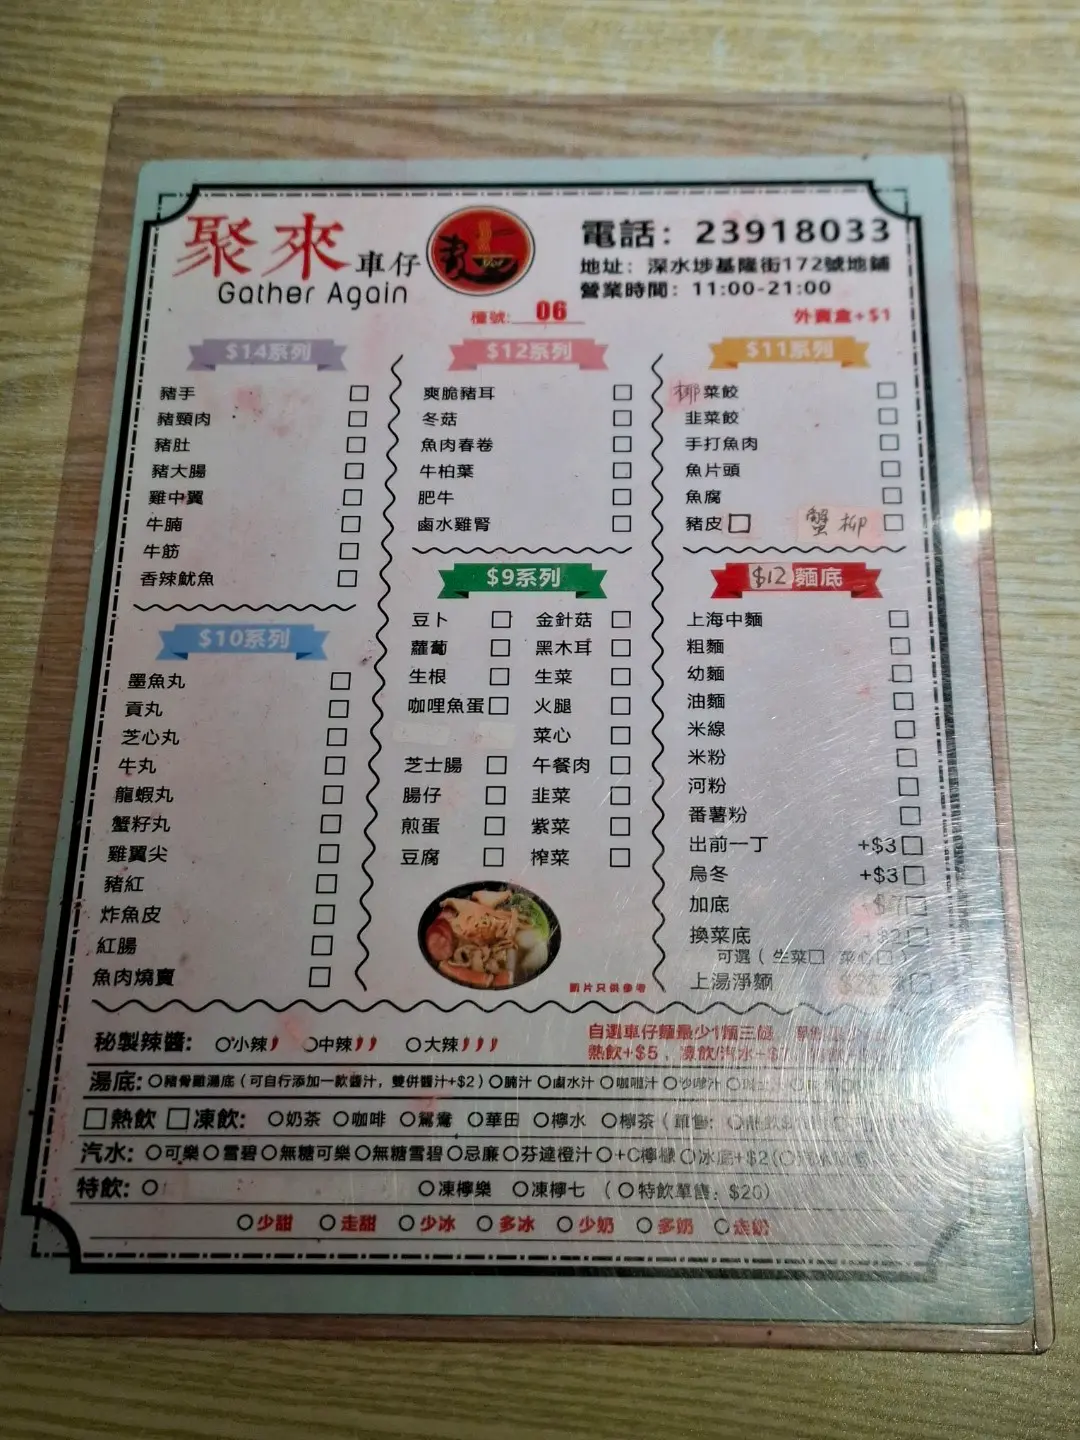 聚來車仔麵
Gather Again
電話：23918033
地址：深水埗基隆街172號地鋪
營業時間：11:00-21:00
檯號: 06
外賣盒+$1
$14系列
豬手
豬頸肉
豬肚
豬大腸
雞中翼
牛腩
牛筋
香辣魷魚
$10系列
墨魚丸
貢丸
芝心丸
牛丸
龍蝦丸
蟹籽丸
雞翼尖
豬紅
炸魚皮
紅腸
魚肉燒賣
$12系列
爽脆豬耳
冬菇
魚肉春卷
牛柏葉
肥牛
鹵水雞腎
$9系列
豆卜 金針菇
蘿蔔 黑木耳
生根 生菜
咖哩魚蛋 火腿
菜心
芝士腸 午餐肉
腸仔 韭菜
煎蛋 紫菜
豆腐 榨菜
圖片只供參考
$11系列
椰菜餃
韭菜餃
手打魚肉
魚片頭
魚腐
豬皮 蟹柳
$12麵底
上海中麵
粗麵
幼麵
油麵
米線
米粉
河粉
番薯粉
出前一丁 +$3
烏冬 +$3
加底 $7
換菜底 +$2
可選（生菜 菜心）
上湯淨麵
秘製辣醬: 小辣 中辣 大辣
自選車仔麵最少1麵三餸
熱飲+$5，凍飲/汽水
湯底: 豬骨雞湯底（可自行添加一款醬汁，雙併醬汁+$2） 腩汁 鹵水汁 咖喱汁 沙嗲汁
熱飲 凍飲: 奶茶 咖啡 鴛鴦 華田 檸水 檸茶
汽水: 可樂 雪碧 無糖可樂 無糖雪碧 忌廉 芬達橙汁 +C檸檬 冰底+$2
特飲: 凍檸樂 凍檸七 （特飲單售：$20）
少甜 走甜 少冰 多冰 少奶 多奶 走奶